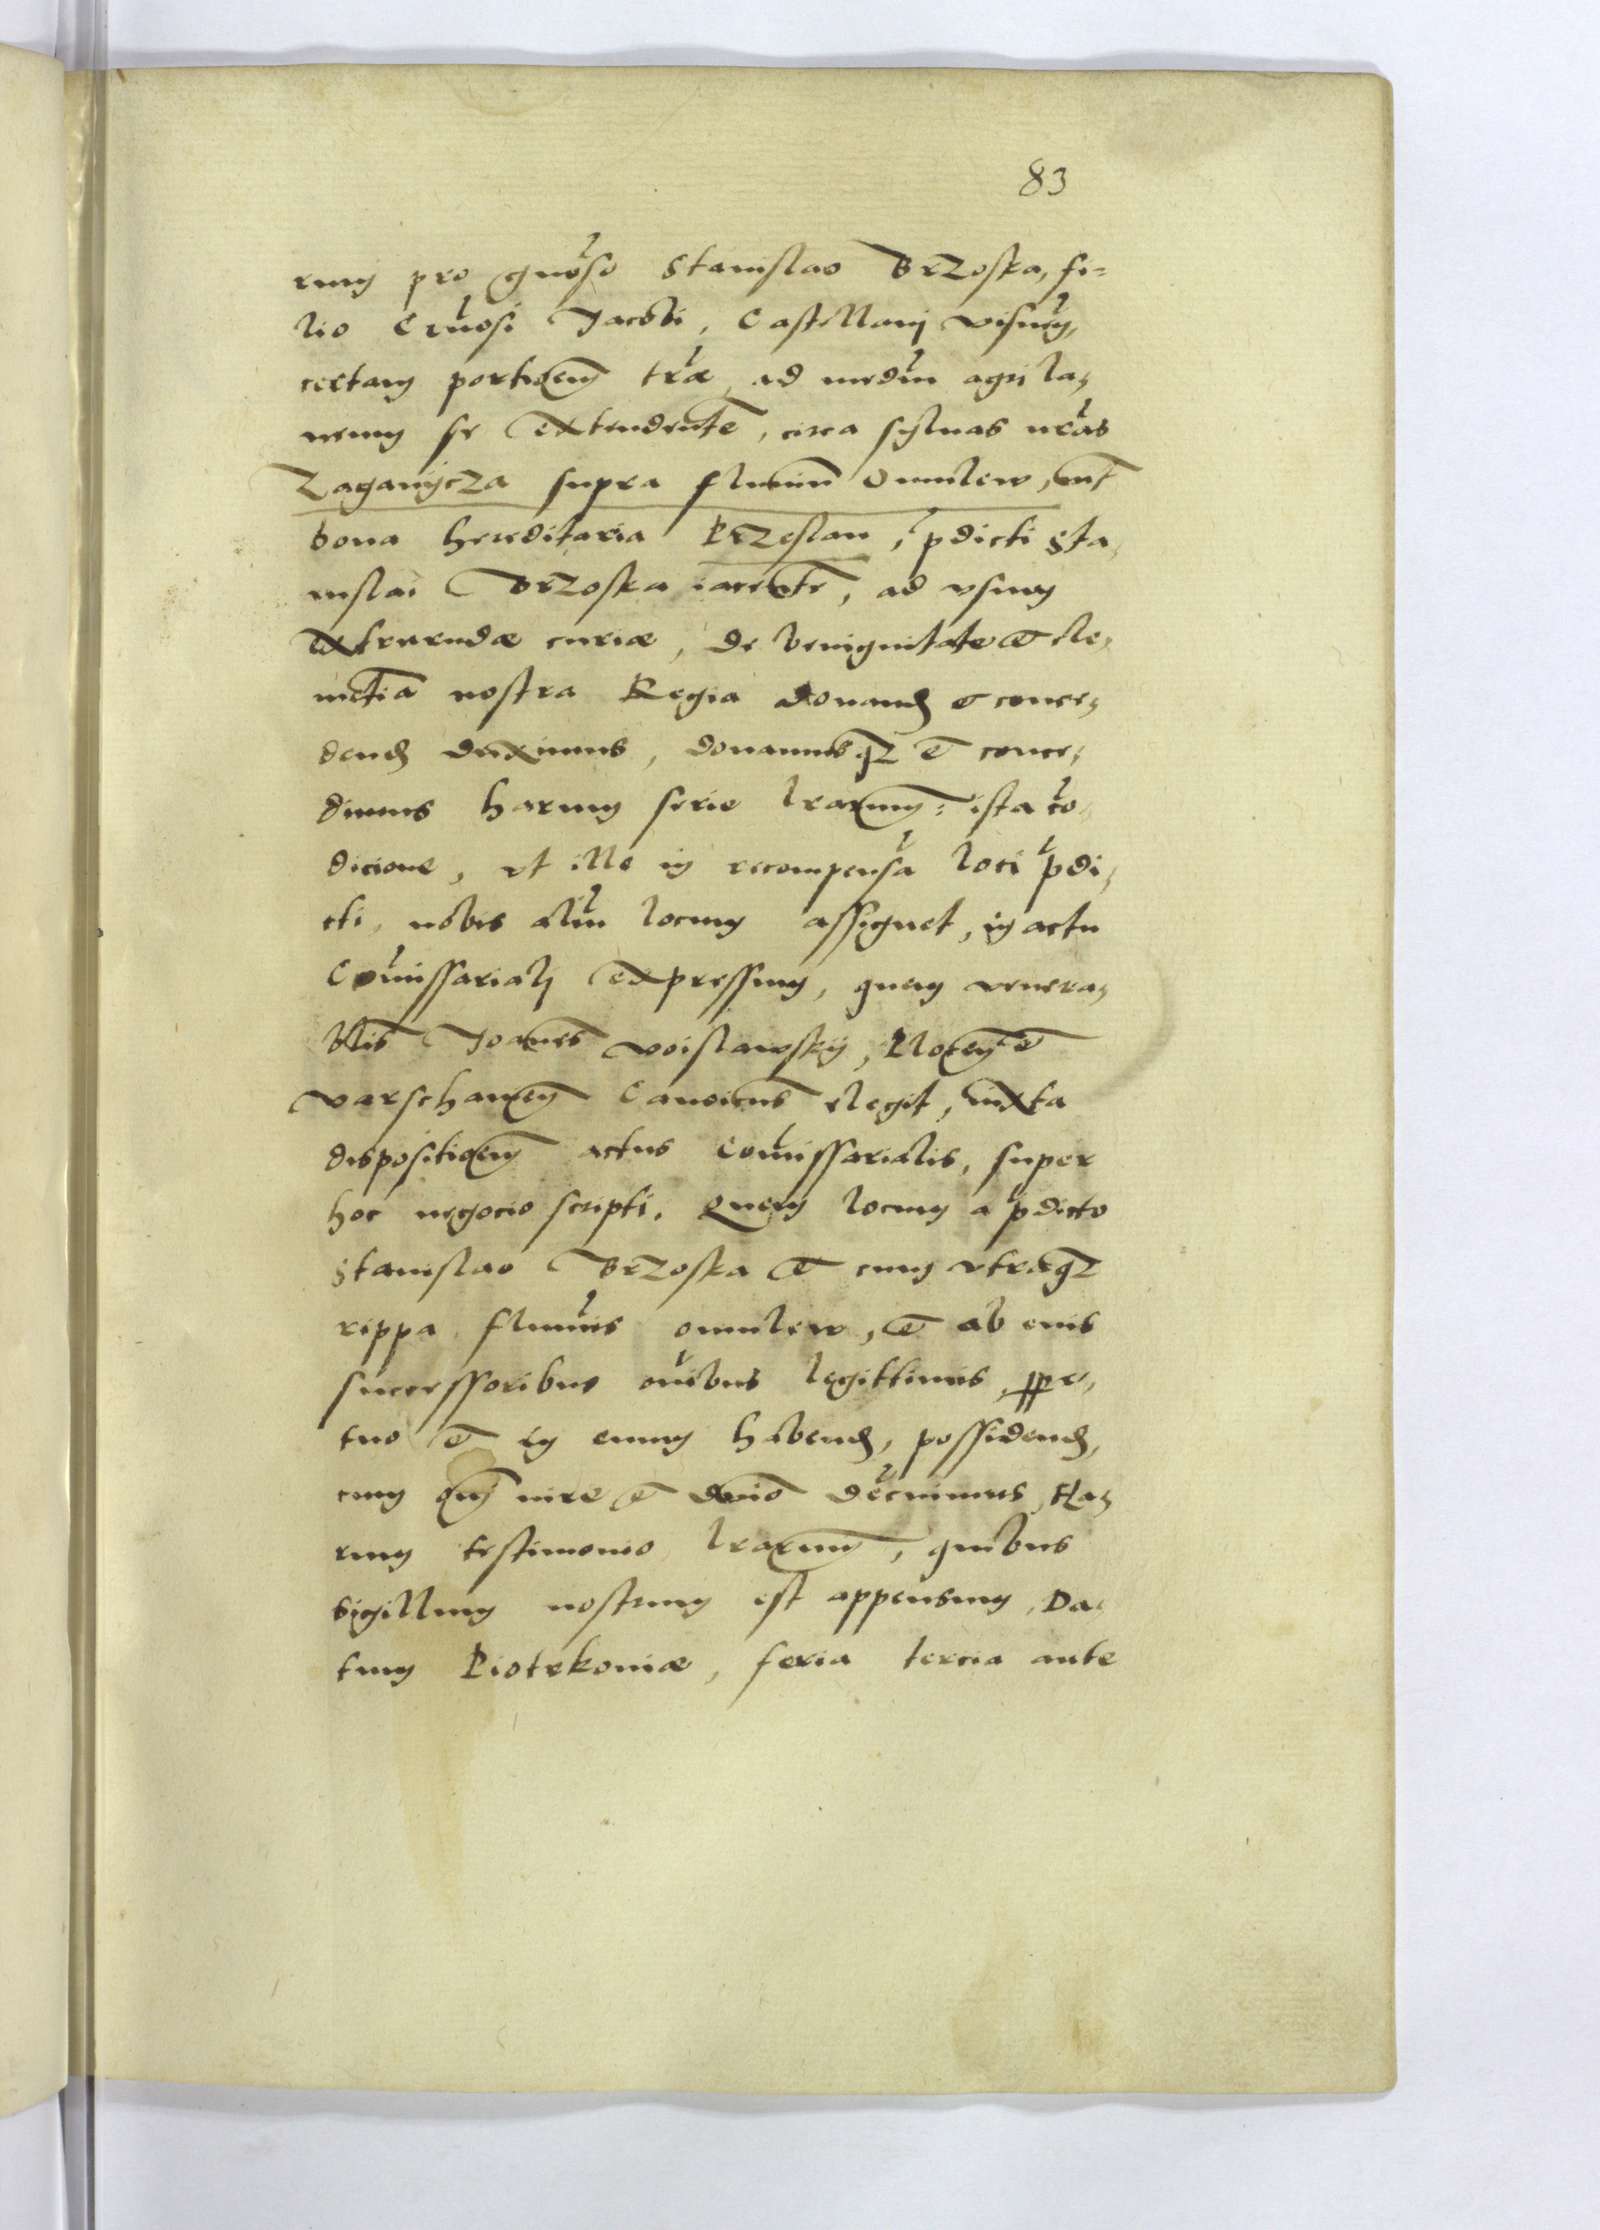 83
rum pro gnoso Stanislao Brzoska, fi=
lio Gnosi Jacobi, Castellani visnen,
certam portionem trae ad medium agri la,
neum se extendente, circa syluas nras
Zaganycza supra flumen Omulew, int
bona hereditaria Przeslan, pdicti Sta,
nislai Brzoska iacente, ad vsum
extruendæ curiæ, de benignitate et cle,
mentia nostra Regia donand et conce,
dend duximus, donamusq et conce,
dimus harum serie lrarum: ista co,
dicione, vt ille in recompensa loci pdi,
cti, nobis aliu locum assignet, in actu
Comissariali expressum, quem venera,
blis Joannes Woislawsky, Plocen et
Varschauien Canoicus elegit, iuxta
dispositionem actus Comissarialis, super
hoc negocio scripti. Quem locum a pdicto
Stanislao Brzoska et cum vtraq
rippa fluminis Omulew, et ab eius
successoribus oibus legittimis, ppe,
tuo et in euum habend, possidend,
cum omni iure et domio decernimus, Ha,
rum testimonio lrarum, quibus
Sigillum nostrum est appensum, Da,
tum Piotrkoviæ, feria tercia ante